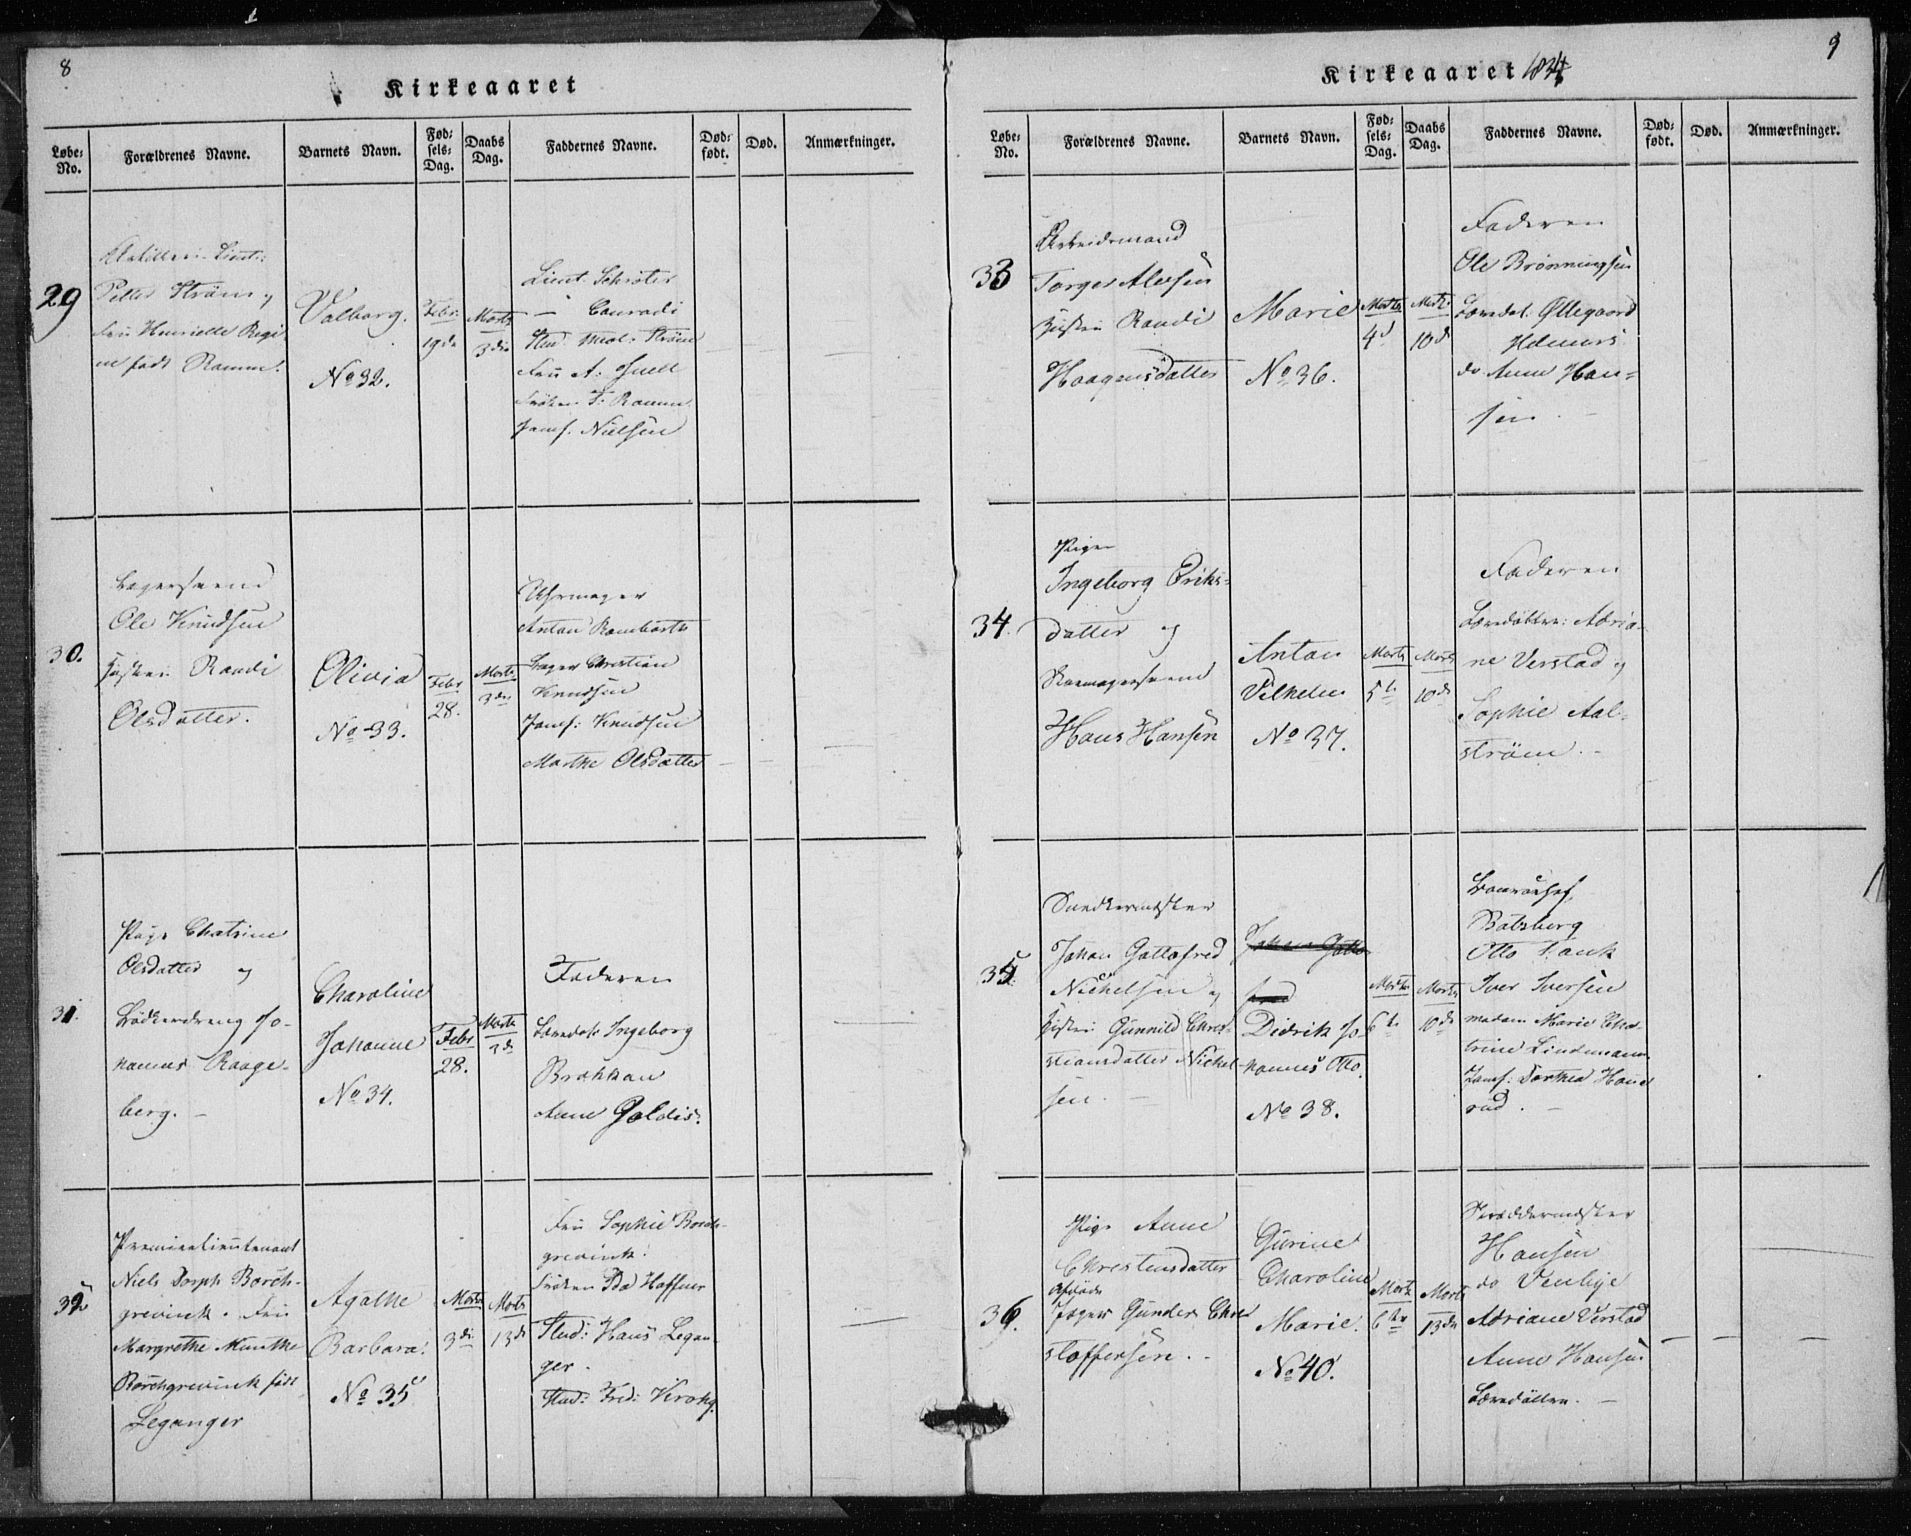 8
Kirkeaaret
Løbe-No.
Forældrenes Navne.
Barnets Navn.
Fødsels-Dag.
Daabs Dag.
Faddernes Navne.
Dødfødt.
Død.
Anmærkninger.
29
Petter Strøm og
Fru Henriette Regi
ne født Ramm.
Valborg.
No 32.
Febr:
19de
Marts
3die
Lieut. Schrøter
— Conradi
Stud. Strøm
Fru A. Juell
Frøken Ramm
Jomf. Nielsen
30.
Ole Knudsen
Hustru Randi
Olsdatter.
Olivia
No 33.
Febr
28.
Marts
3die
Uhrmager
Anton
Bager Christian
Knudsen
Jomf: Knudsen
Marthe Olsdatter
31.
Pige Chatrine
Olsdatter og
Bødkerdreng Jo-
hannes Raage-
berg. —
Charoline
Johanne
No 34.
Febr
28.
Marts
3de
Faderen
Ingeborg
Brokkan
Anne
32
Premierlieutenant
Niels Dorph Borch-
grevink. Fru
Margrethe Munthe
Borchgrevink født
Leganger
Agathe
Barbara.
No 35
Marts
3die
Marts
13de
Fru Sophie Borch-
grevink.
Frøken Ida Haffner
Stud: Hans Legan-
ger.
Stud: Fred: Krohg.
Kirkeaaret 1834
9
Løbe-No.
Forældrenes Navne.
Barnets Navn.
Fødsels-Dag.
Daabs Dag.
Faddernes Navne.
Dødfødt.
Død.
Anmærkninger.
33
Arbeidsmand
Torger Alersen
Hustru Randi
Haagensdatter
Marie
No 36.
Marts
4d
Marts
10d
Faderen
Ole Brønningsen
Øllegaard
do Anne Han-
sen. —
34.
Pigen
Ingeborg Eriks-
datter og
Skomagersvend
Hans Hansen
Anton
Vilhelm
No 37.
Marts
5te
Marts
10de
Faderen
Adria-
ne Verstad og
Sophie Aal-
strøm. —
35.
Snedkermester
Johan Gottofred
Nickelsen og
Hustru Gunnild Chres-
tiansdatter Nickel-
sen. —
Johan Gotto
fred
Didrik Jo-
hannes Otto.
No 38.
Marts
6te
Marts
10de
Balsberg
Otto
Iver Iversen
madam Marie Cha-
trine Lindemann
Jomf: Dorthea Houe
rud. —
36.
Pige Anne
Christensdatter
Jæger Gunder Chri
stoffersen. —
Gurine
Charoline
Marie.
No 40.
Marts
6te
Marts
13de
Skræddermester
Hansen
do Venhye
Adriane Verstad
Anne Hansen